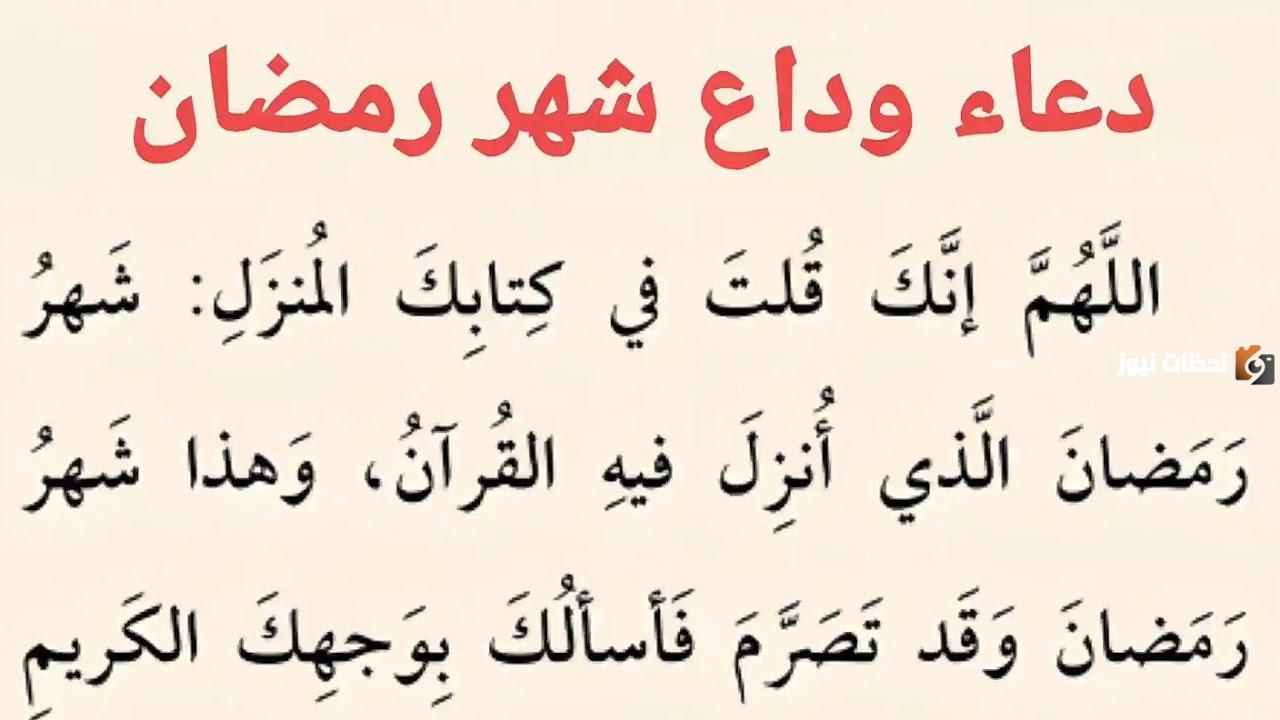 دعاء وداع شهر رمضان
اللَّهُمَّ إنَّكَ قُلتَ في كِتابِكَ المُنزَلِ: شَهرُ
لحظات نيوز
رَمَضانَ الَّذي أُنزِلَ فيهِ القُرآنُ، وَهذا شَهرُ
رَمَضانَ وَقَد تَصَرَّمَ فَأسألُكَ بِوَجهِكَ الكَريمِ